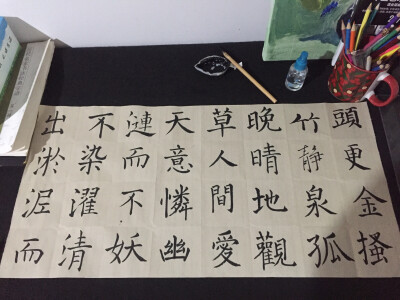 出淤泥而
不染濯清
漣而不妖
天意憐幽
草人間愛
晚晴地觀
竹靜泉孤
頭更金搔